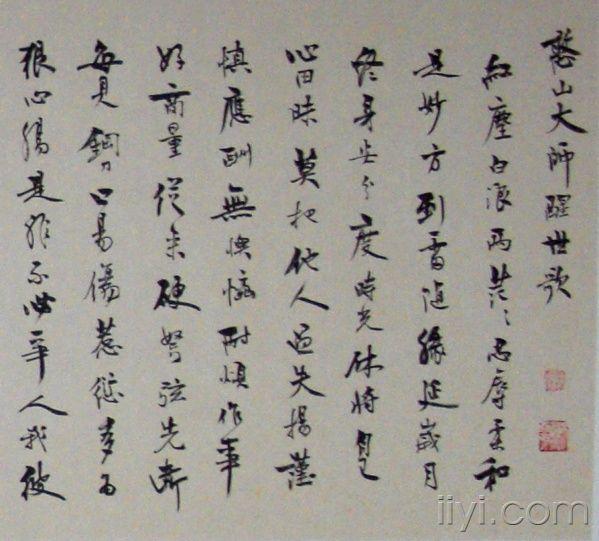 憨山大師醒世歌
紅塵白浪兩茫々忍辱柔和
是妙方到處隨緣延歲月
終身安分度時光休將自己
心田昧莫把他人過失揚謹
慎應酬無懊惱耐煩作事
好商量從來硬弩弦先斷
每見鋼刀口易傷惹愆多為
狠心腸是非不必爭人我彼
iiyi.com